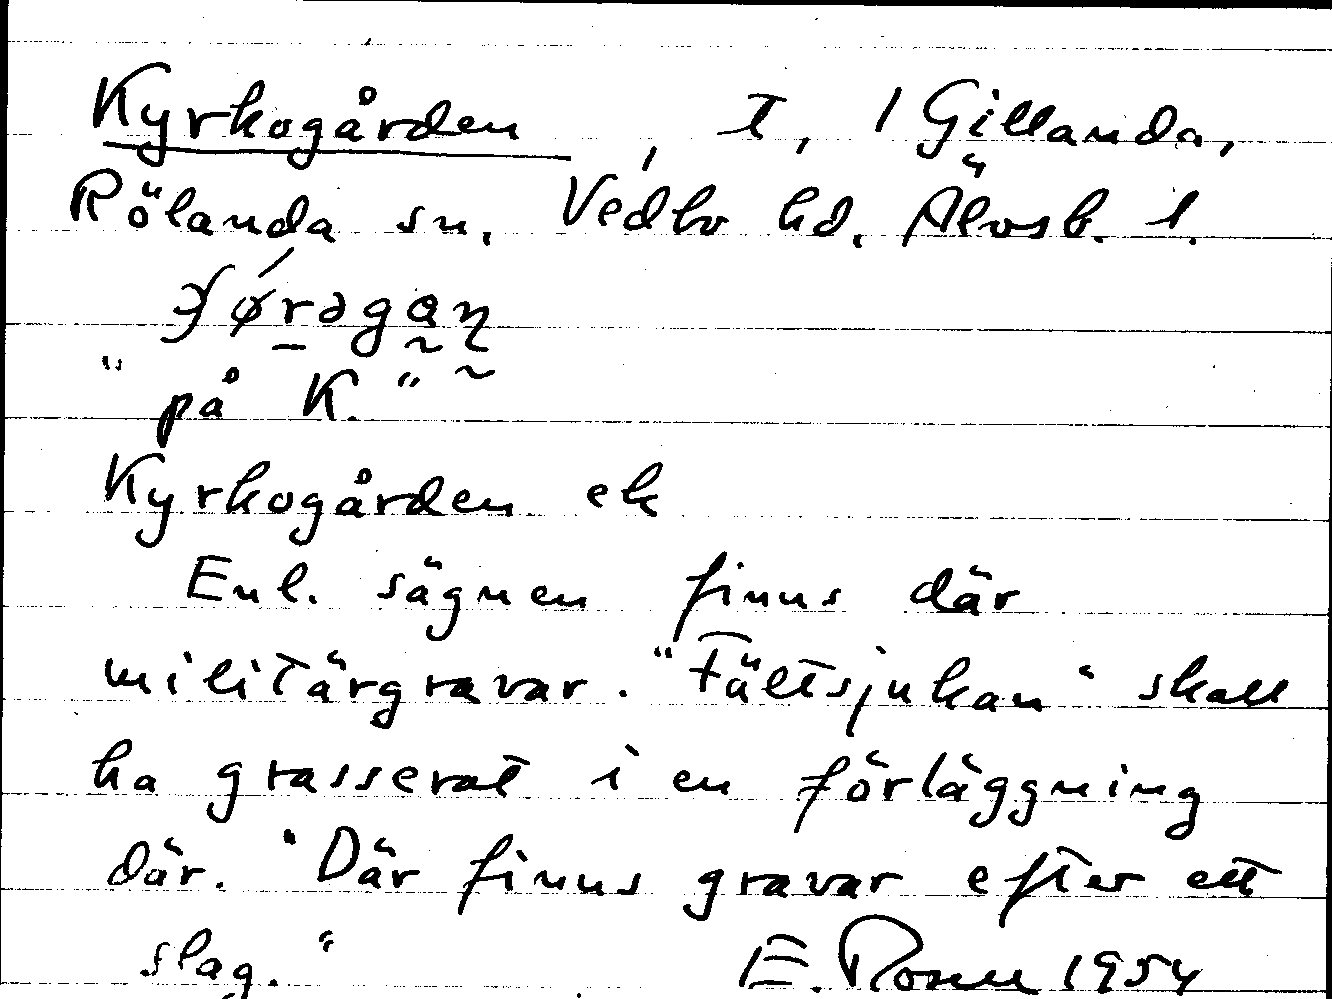 Kyrkogården, T, 1 Gillanda,
Rölanda sn, Vedbo hd. Älvsb. l.
"på K."
Kyrkogården ek
Enl. sägnen finns där
militärgravar. "Fältsjukan" skall
ha grasserat i en förläggning
där. "Där finns gravar efter ett
slag." E. Rosell 1954